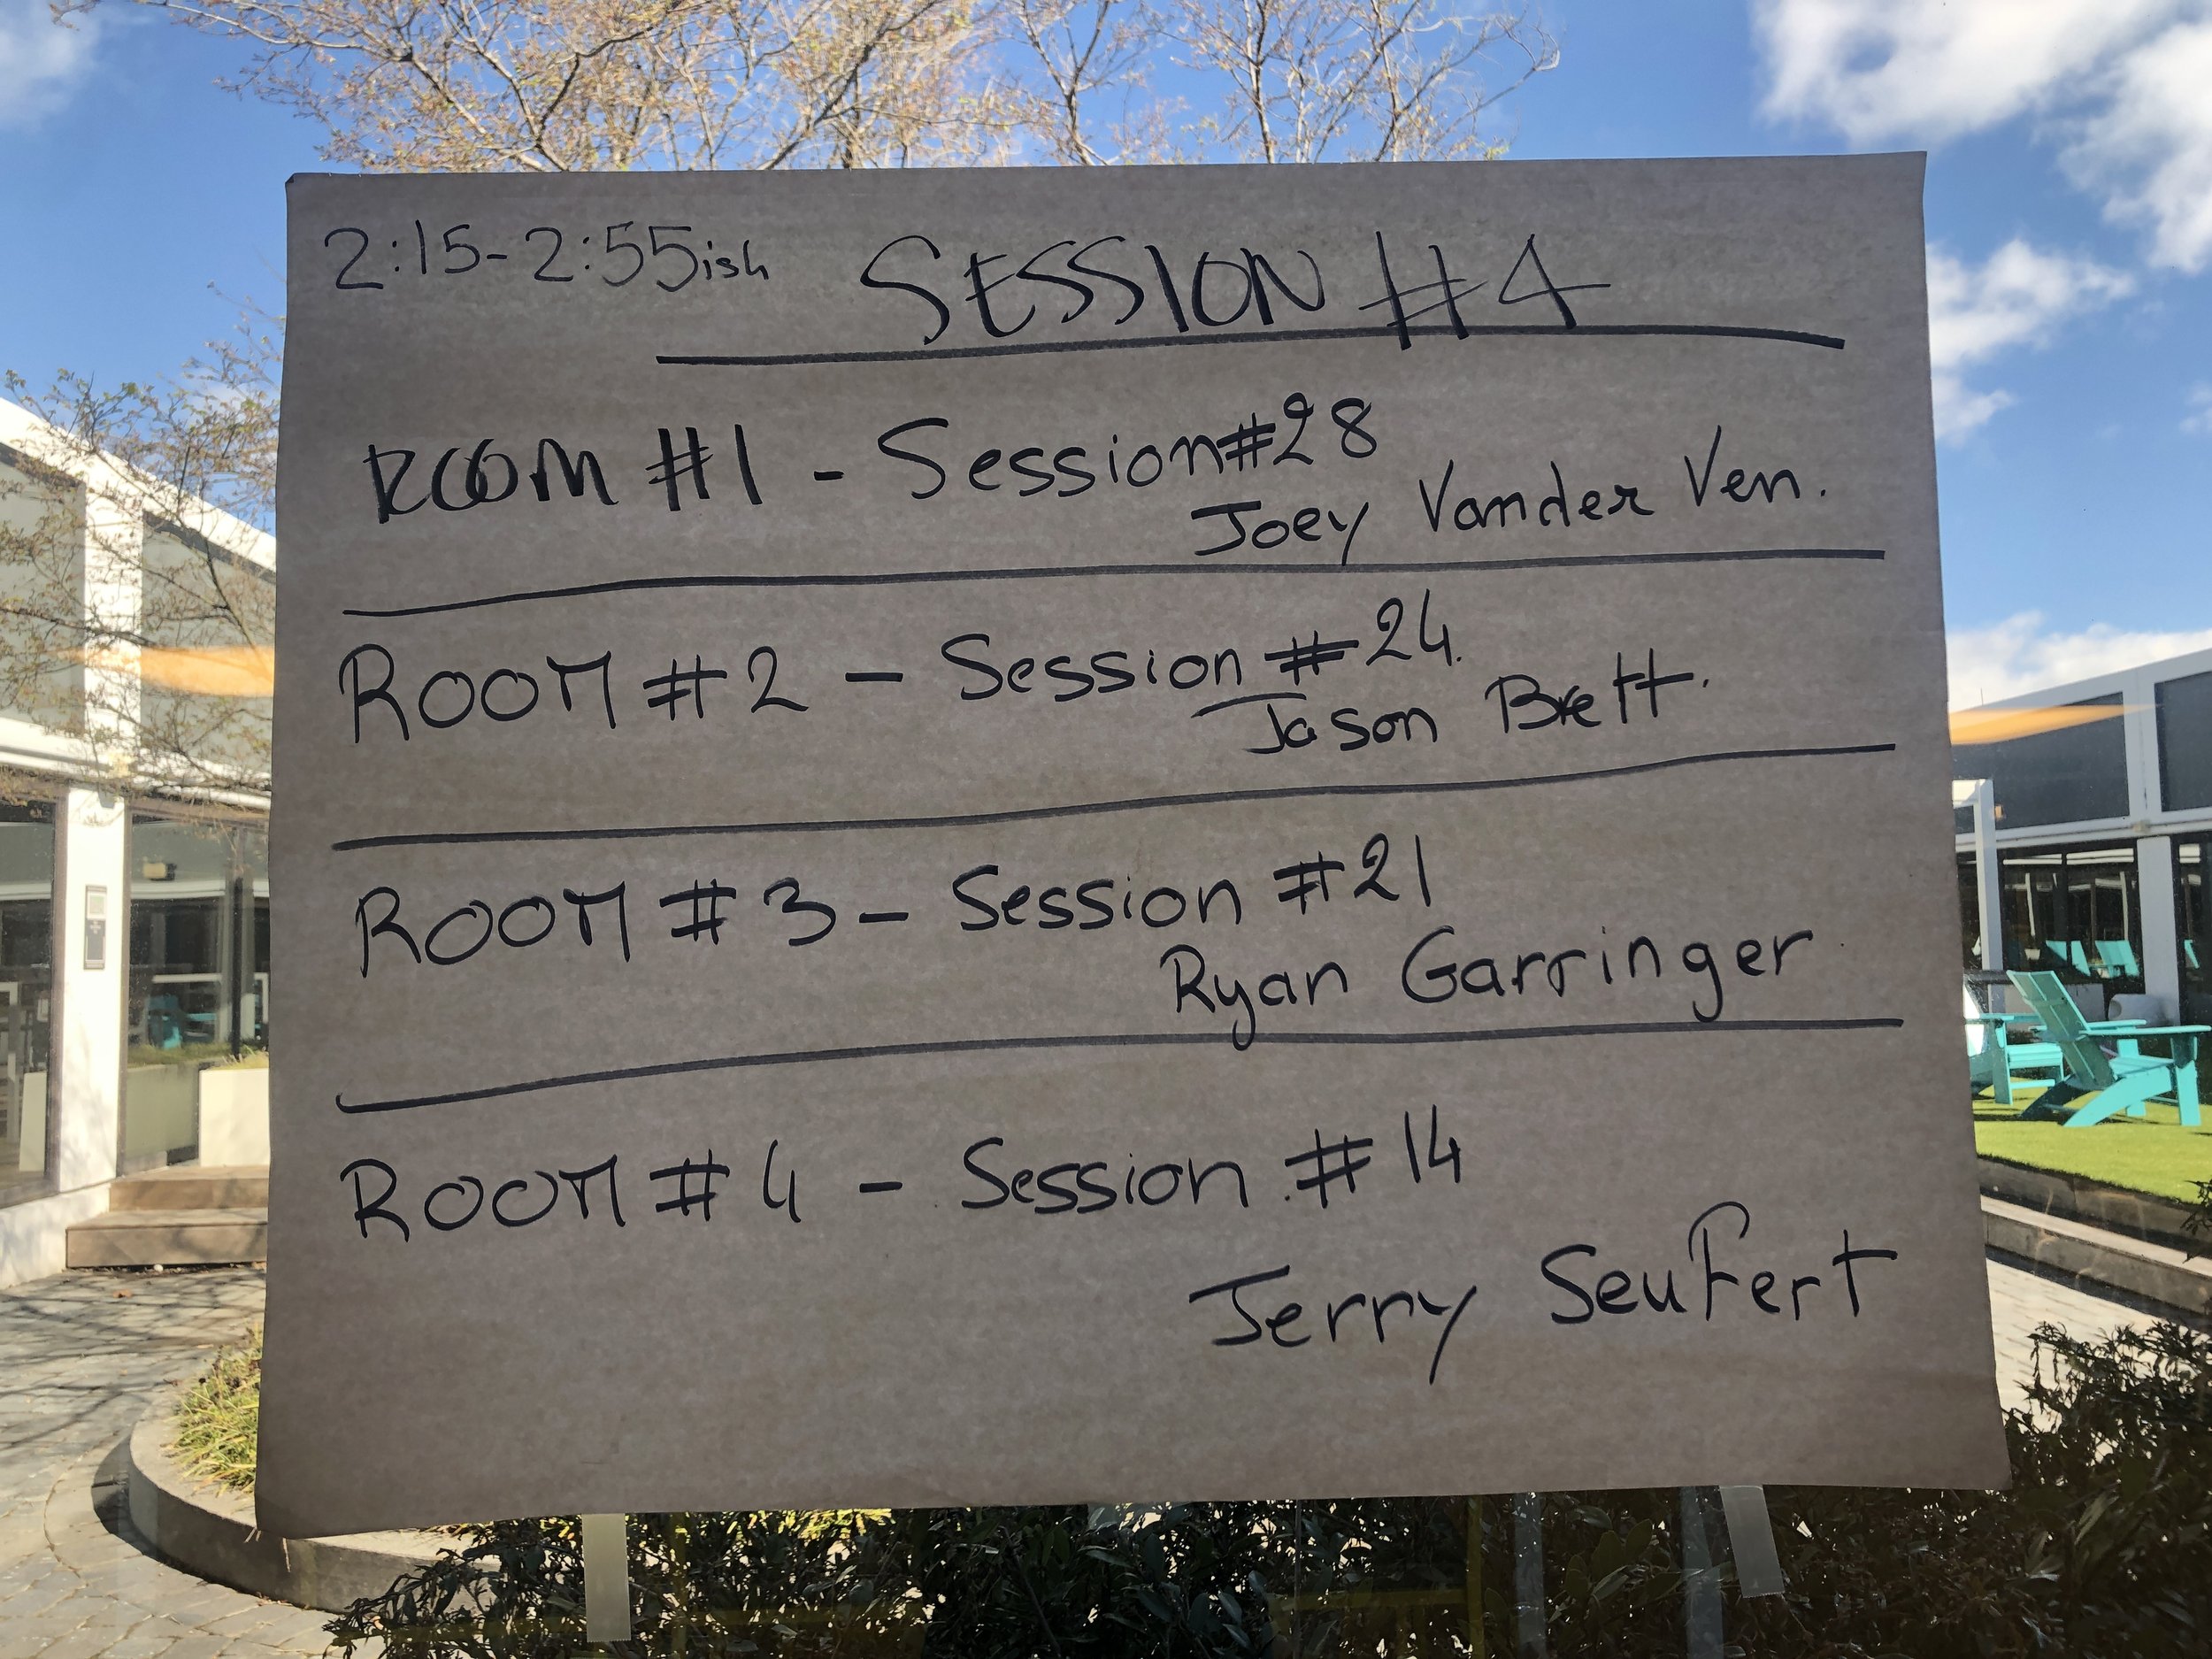 2:15-2:55ish SESSION #4
ROOM #1 - Session #28
Joey Vander Ven.
ROOM #2 - Session #24.
Jason Brett.
ROOM #3 - Session #21
Ryan Garringer.
ROOM #4 - Session #14
Jerry Seufert